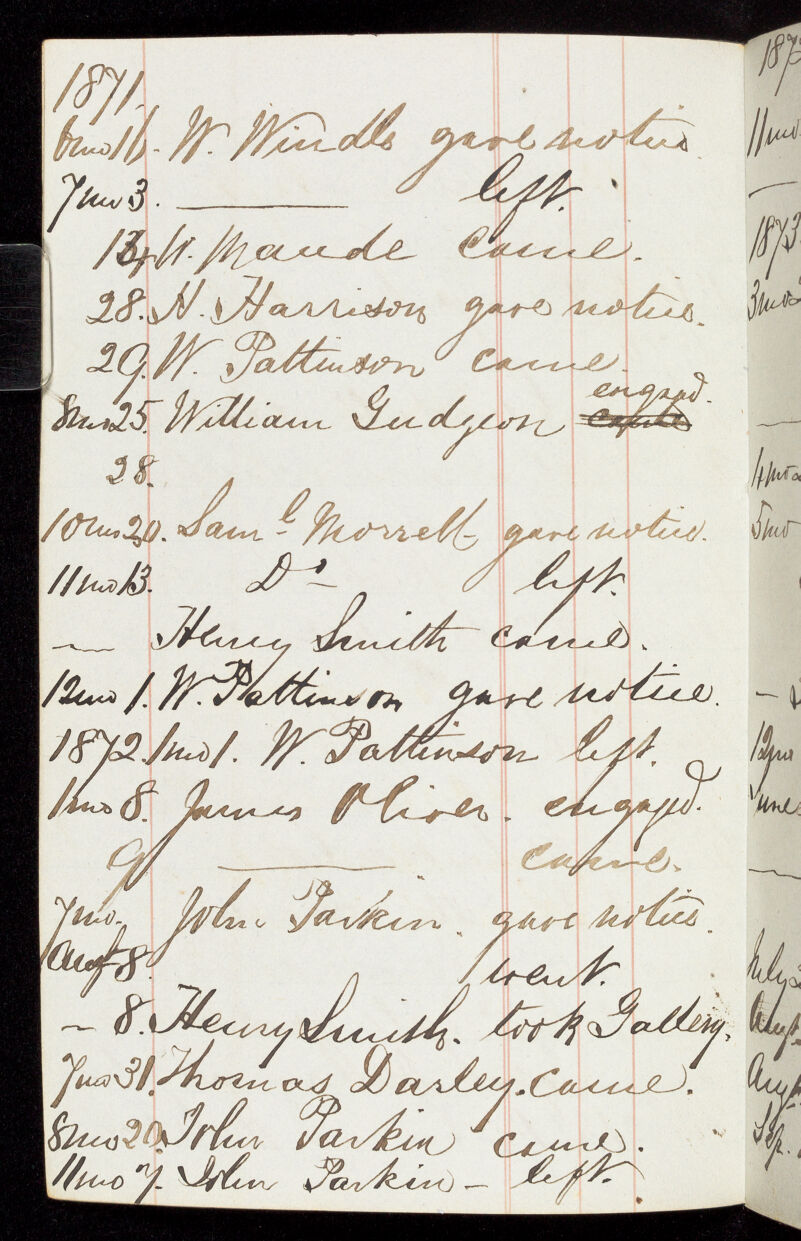 1871.
6mo 16. W. Windle gave notice.
7mo 3. ——— left.
14 W. Maude came.
28. H. Harrison gave notice.
29. W. Pattinson came.
engagd.
8mo 25. William Gudgeon came
28.
10mo 20. Saml Morrell gave notice.
11mo 13. Do left.
— Henry Smith came.
12mo 1. W. Pattinson gave notice.
1872. 1mo 1. W. Pattinson left.
1mo 8. James Oliver. engaged.
9 ——— came.
7mo. John Parkin. gave notice.
Augt 8. went.
— 8. Henry Smith. took Gallery.
7mo 31. Thomas Darley. came.
8mo 20. John Parkin came.
11mo 7. John Parkin — left.
11mo
1873
3mo
4mo
5mo
12mo
June
July
Augt
Augt
Sep.